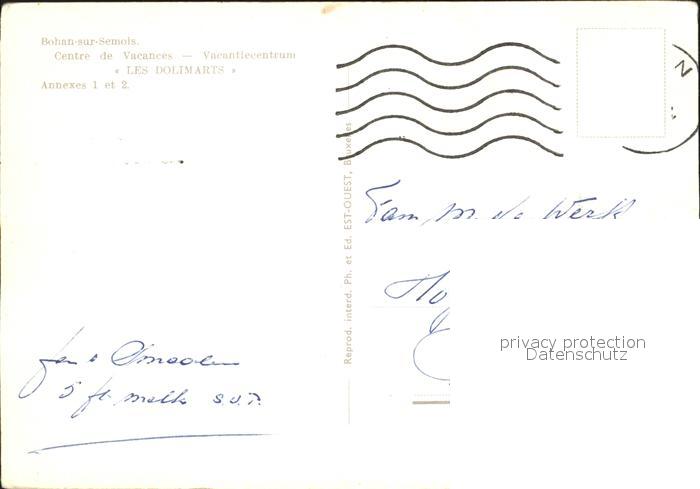 Bohan-sur-Semois.
Centre de Vacances — Vacantiecentrum
« LES DOLIMARTS »
Annexes 1 et 2.
Reprod. interd. Ph. et Ed. EST-OUEST, Bruxelles
Fam M. de Werk
privacy protection
Datenschutz
5 fl. melk s.v.p.